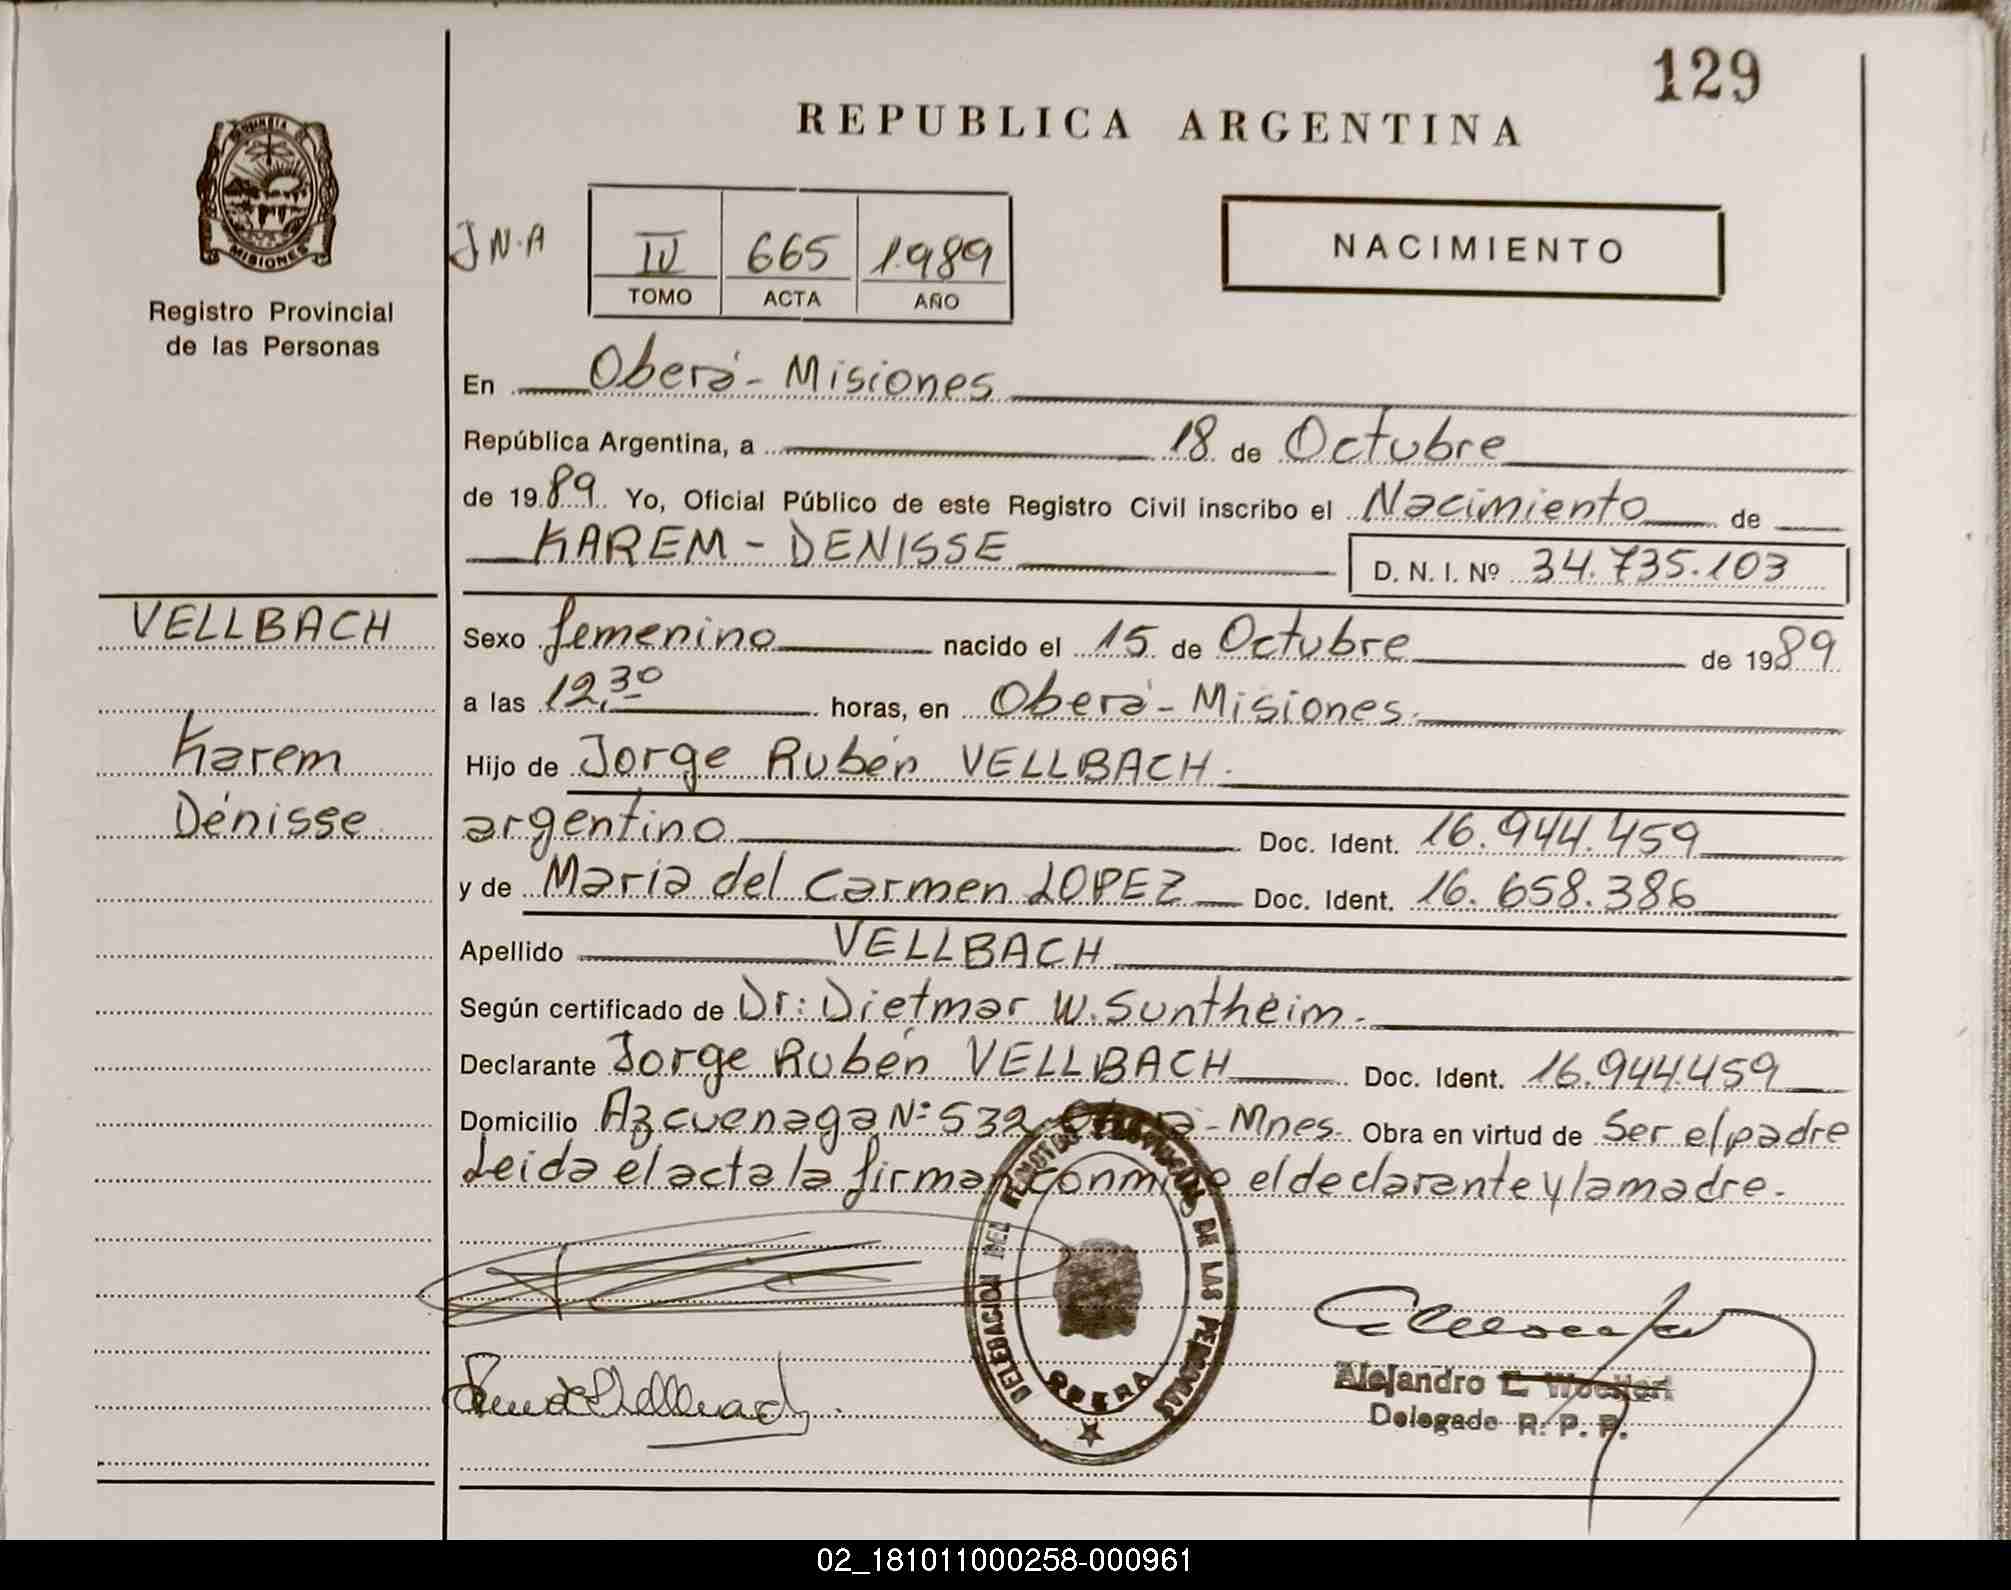 129
REPUBLICA ARGENTINA
PROVINCIA
MISIONES
Registro Provincial
de las Personas
JN.A
IV 665 1.989
TOMO ACTA AÑO
NACIMIENTO
En Oberá - Misiones
República Argentina, a 18 de Octubre
de 1989 Yo, Oficial Público de este Registro Civil inscribo el Nacimiento de
KAREM - DENISSE
D. N. I. Nº 34.735.103
VELLBACH
Karem
Dénisse
Sexo femenino nacido el 15 de Octubre de 1989
a las 12,30 horas, en Oberá - Misiones.
Hijo de Jorge Rubén VELLBACH.
argentino Doc. Ident. 16.944.459
y de María del Carmen LOPEZ Doc. Ident. 16.658.386
Apellido VELLBACH
Según certificado de Dr: Dietmar W. Suntheim.
Declarante Jorge Rubén VELLBACH Doc. Ident. 16.944.459
Domicilio Azcuenaga Nº 532 Oberá - Mnes. Obra en virtud de Ser el padre
Leida el acta la firman conmigo el declarante y la madre.
DELEGACION DEL REGISTRO PROVINCIAL DE LAS PERSONAS
OBERA
Alejandro E.
Delegado R. P. P.
02_181011000258-000961